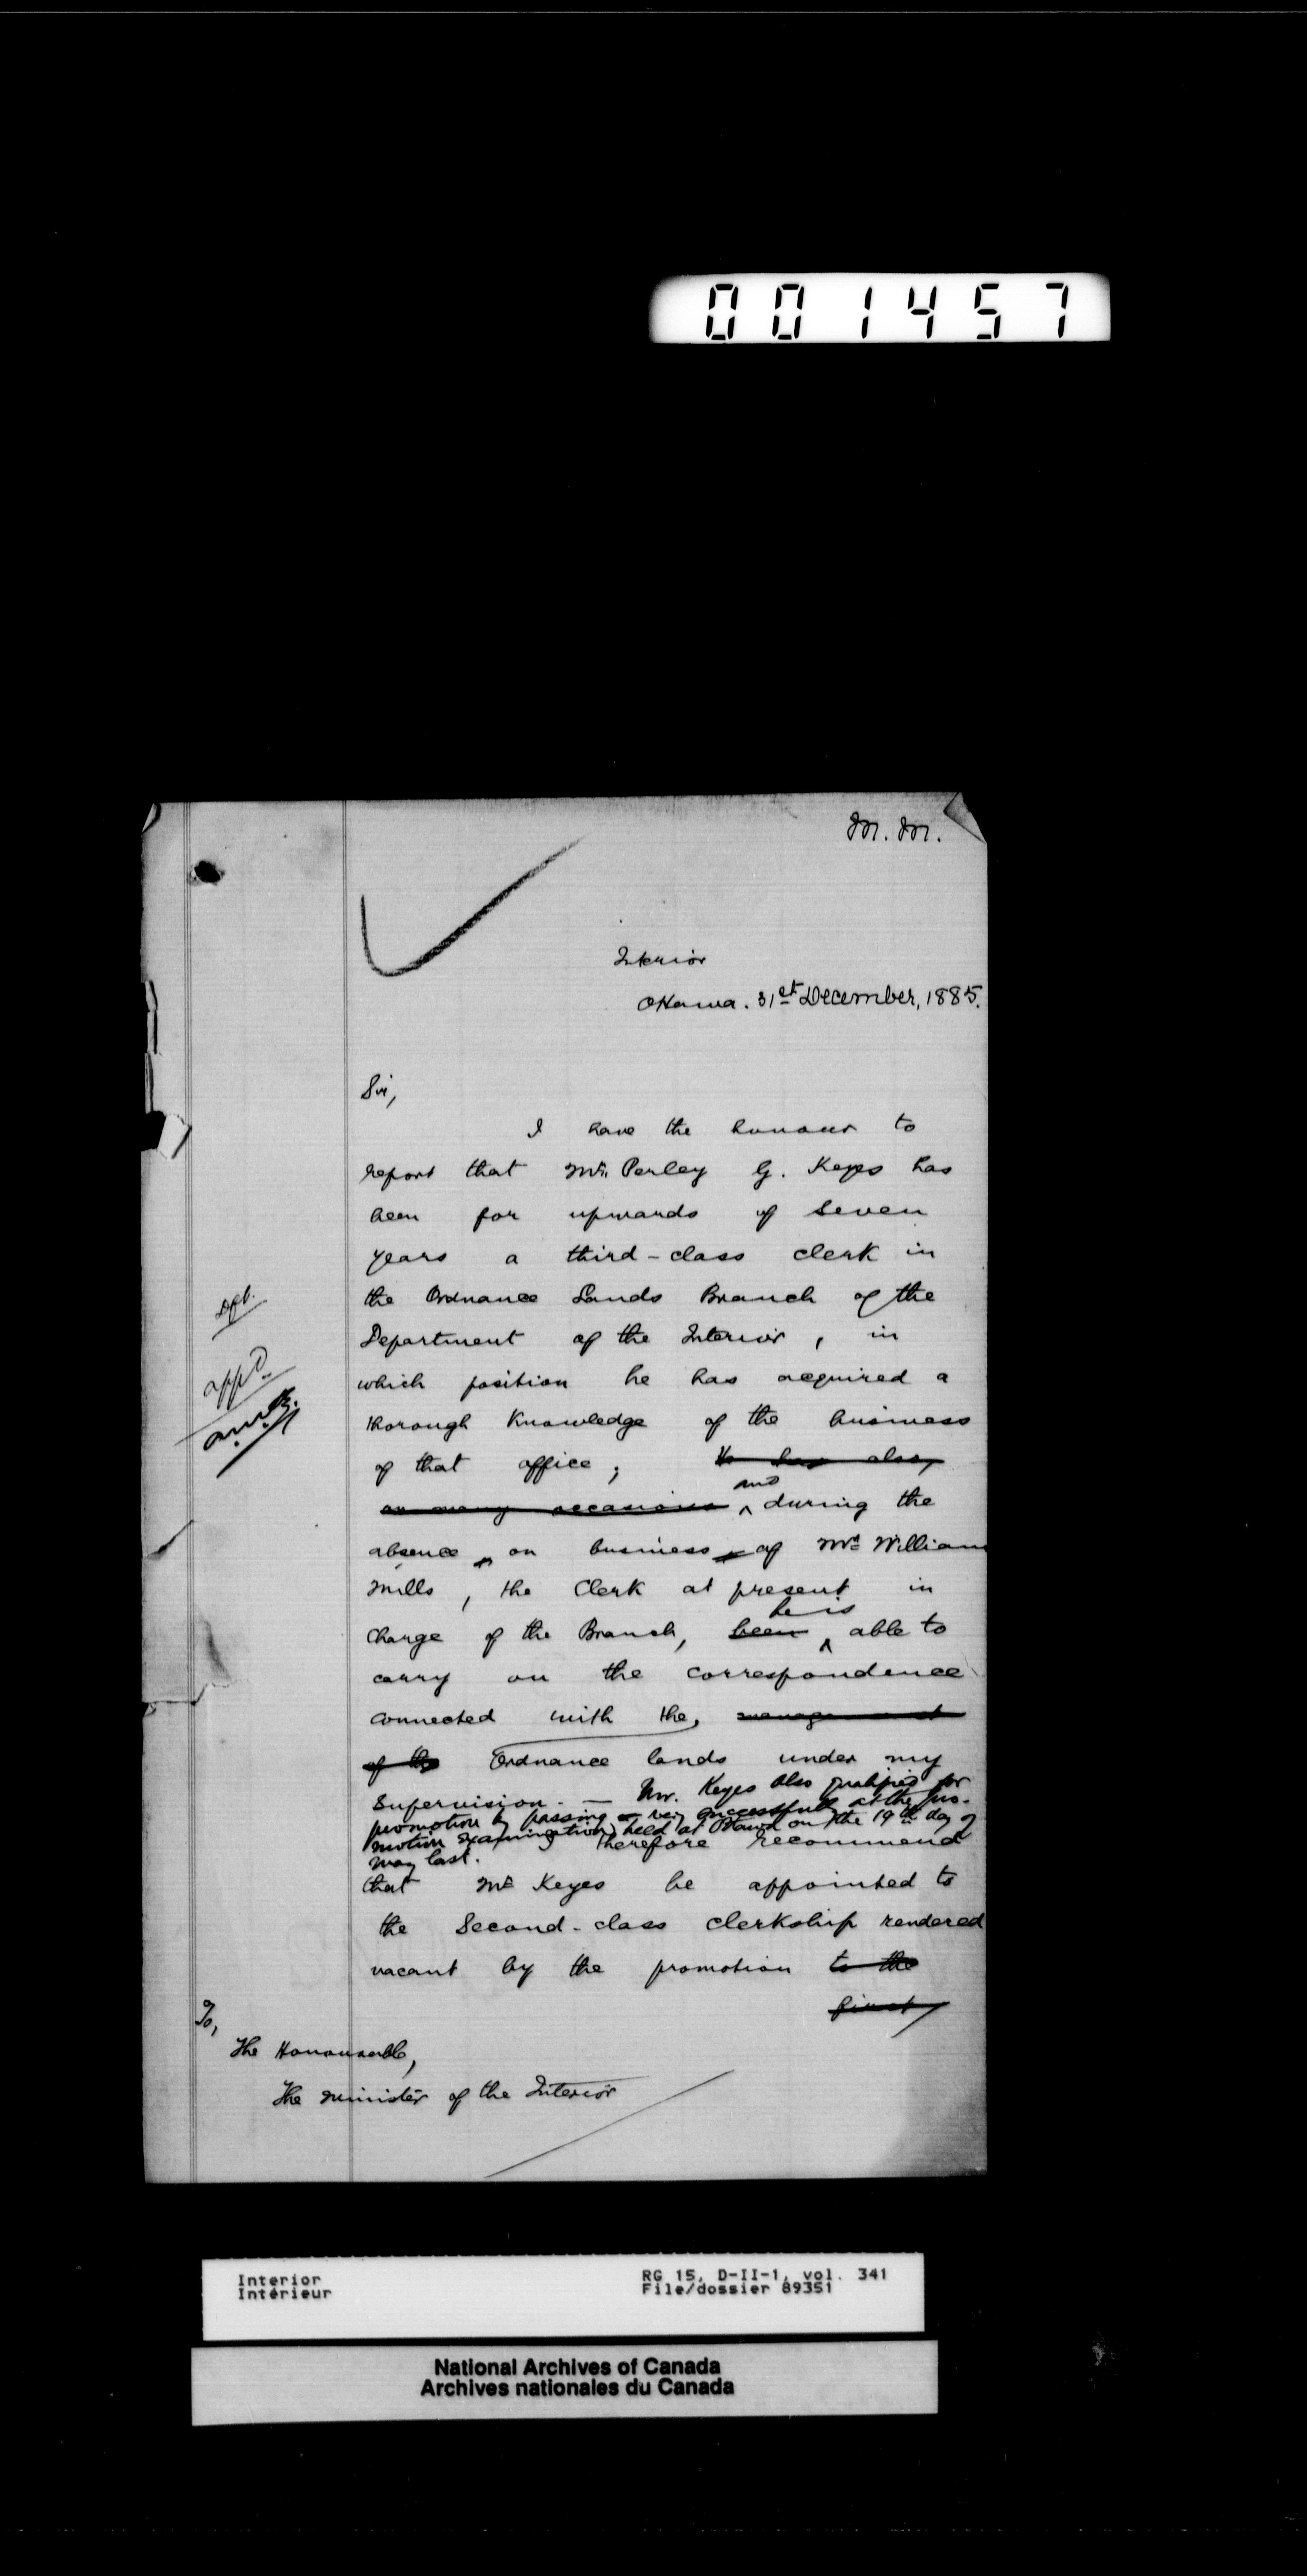 001457
M. M.
Interior
Ottawa. 31st December, 1885.
Sir,
I have the honour to
report that Mr. Perley G. Keyes has
been for upwards of seven
years a third-class clerk in
the Ordnance Lands Branch of the
Department of the Interior, in
which position he has acquired a
thorough knowledge of the business
of that office; he has also,
on many occasions and during the
absence, on business, of Mr. William
Mills, the Clerk at present in
charge of the Branch, been he is able to
carry on the correspondence
connected with the, management
of the Ordnance lands under my
supervision. — Mr. Keyes also qualified for
promotion by passing very successfully at the pro-
motion examination held at Ottawa on the 19th day of
May last. I therefore recommend
that Mr. Keyes be appointed to
the Second-class clerkship rendered
vacant by the promotion to the
first
Dft.
appd.
A.M.B.
To,
The Honourable,
The Minister of the Interior
Interior
Intérieur
RG 15, D-II-1, vol. 341
File/dossier 89351
National Archives of Canada
Archives nationales du Canada